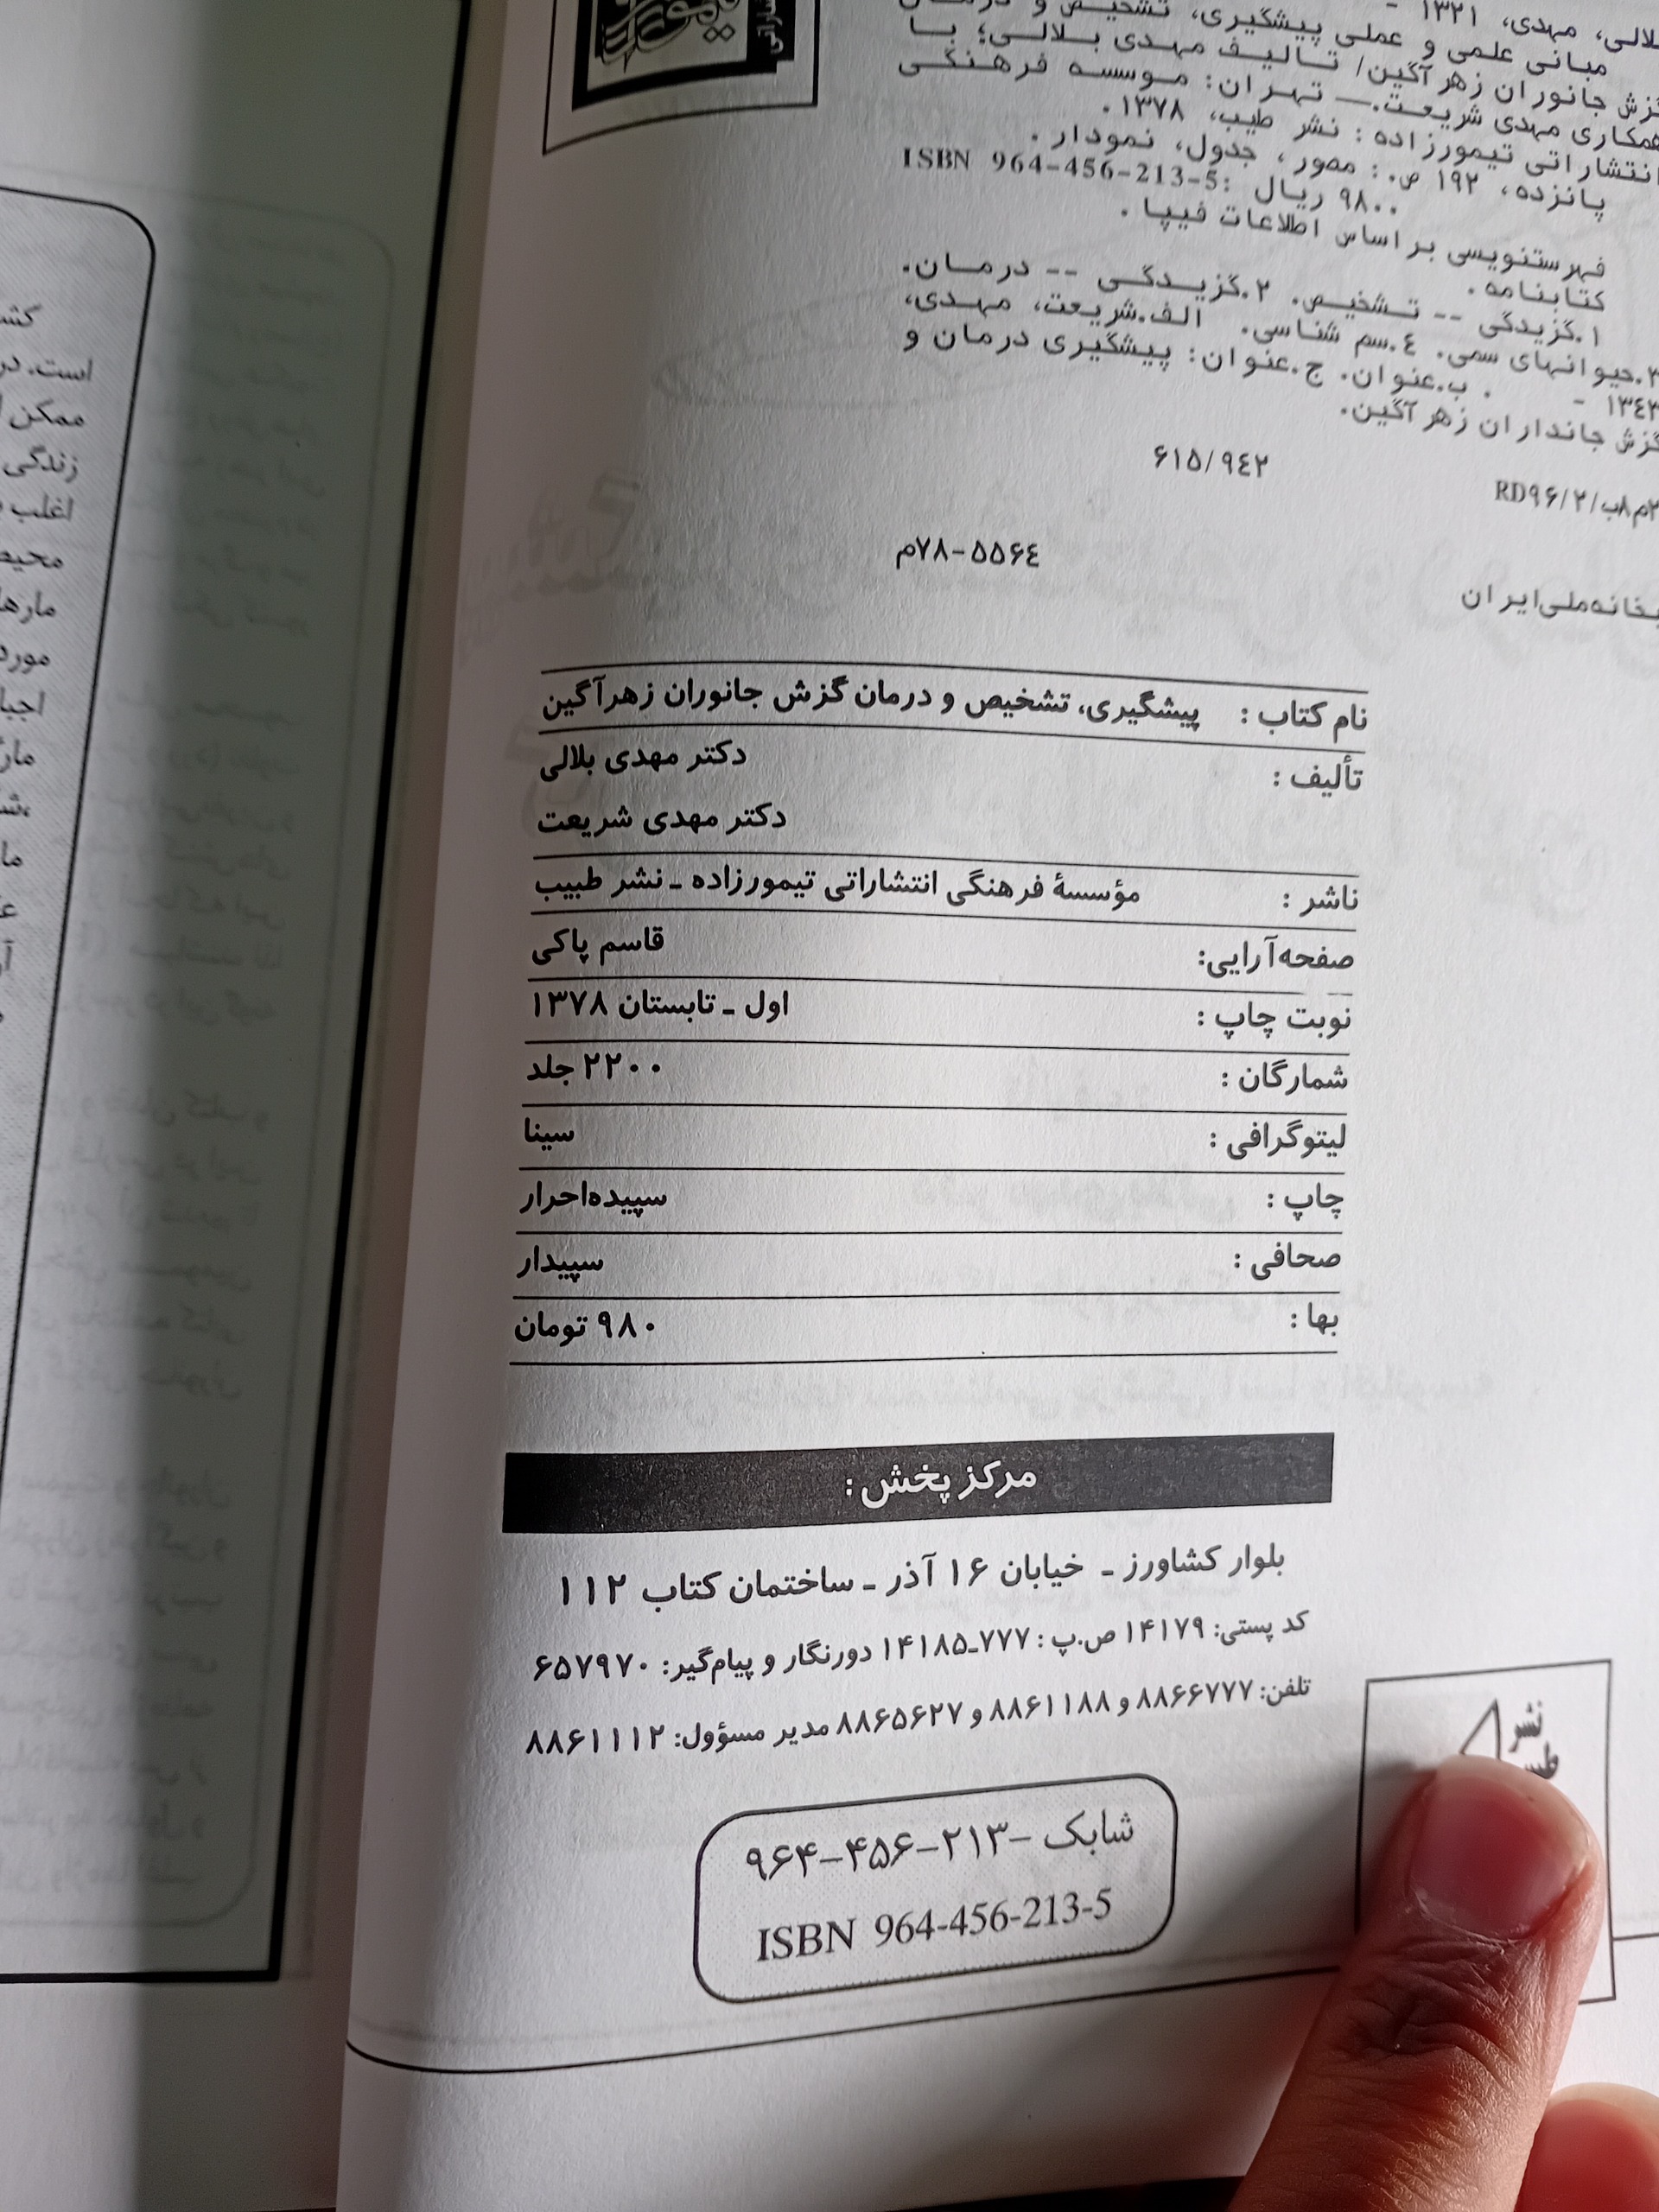 بلالی، مهدی، ۱۳۲۱ -
مبانی علمی و عملی پیشگیری، تشخیص و درمان
گزش جانوران زهرآگین/ تالیف مهدی بلالی؛ با
همکاری مهدی شریعت.— تهران: موسسه فرهنگی
انتشاراتی تیمورزاده : نشر طبیب، ۱۳۷۸.
پانزده، ۱۹۲ ص.: مصور، جدول، نمودار.
ISBN 964-456-213-5: ۹۸۰۰ ریال
فهرستنویسی براساس اطلاعات فیپا.
کتابنامه.
۱.گزیدگی -- تشخیص. ۲.گزیدگی -- درمان.
۳.حیوانهای سمی. ٤.سم شناسی. الف.شریعت، مهدی،
۱۳٤۳ - . ب.عنوان. ج.عنوان: پیشگیری درمان و
گزش جانداران زهرآگین.
۶۱۵/۹٤۲
RD۹۶/۲/ب۸م۲
۷۸-۵۵۶٤م
ملی‌ایران
نام کتاب : پیشگیری، تشخیص و درمان گزش جانوران زهرآگین
تألیف : دکتر مهدی بلالی
دکتر مهدی شریعت
ناشر : مؤسسهٔ فرهنگی انتشاراتی تیمورزاده ـ نشر طبیب
صفحه‌آرایی: قاسم پاکی
نوبت چاپ : اول ـ تابستان ۱۳۷۸
شمارگان : ۲۲۰۰ جلد
لیتوگرافی : سینا
چاپ : سپیده‌احرار
صحافی : سپیدار
بها : ۹۸۰ تومان
مرکز پخش:
بلوار کشاورز ـ خیابان ۱۶ آذر ـ ساختمان کتاب ۱۱۲
کد پستی: ۱۴۱۷۹ ص.پ : ۷۷۷ـ۱۴۱۸۵ دورنگار و پیام‌گیر: ۶۵۷۹۷۰
تلفن: ۸۸۶۶۷۷۷ و ۸۸۶۱۱۸۸ و ۸۸۶۵۶۲۷ مدیر مسؤول: ۸۸۶۱۱۱۲
شابک –۲۱۳–۴۵۶–۹۶۴
ISBN 964-456-213-5
نشر
است. در
ممکن
زندگی
اغلب
مورد